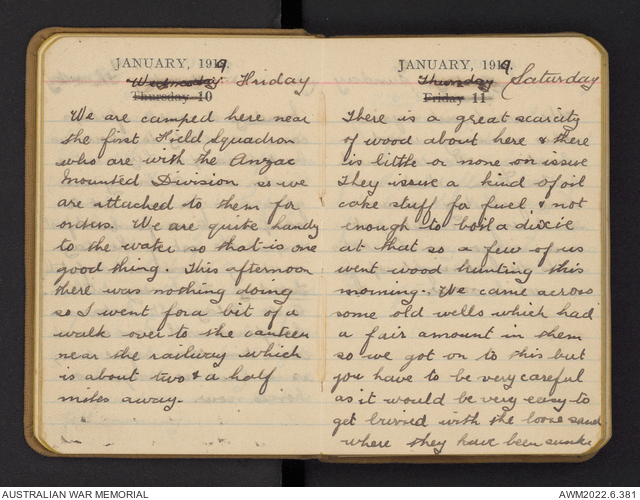 JANUARY, 1919.
Wednesday Friday
Thursday 10
We are camped here near
the first Field Squadron
who are with the Anzac
Mounted Division so we
are attached to them for
orders. We are quite handy
to the water so that is one
good thing. This afternoon
there was nothing doing
so I went for a bit of a
walk over to the canteen
near the railway which
is about two & a half
miles away.
JANUARY, 1919.
Thursday Saturday
Friday 11
There is a great scarcity
of wood about here & there
is little or none on issue
They issue a kind of oil
cake stuff for fuel & not
enough to boil a dixie
at that so a few of us
went wood hunting this
morning. We came across
some old wells which had
a fair amount in them
so we got on to this but
you have to be very careful
as it would be very easy to
get burried with the loose sand
where they have been sunk
AUSTRALIAN WAR MEMORIAL
AWM2022.6.381